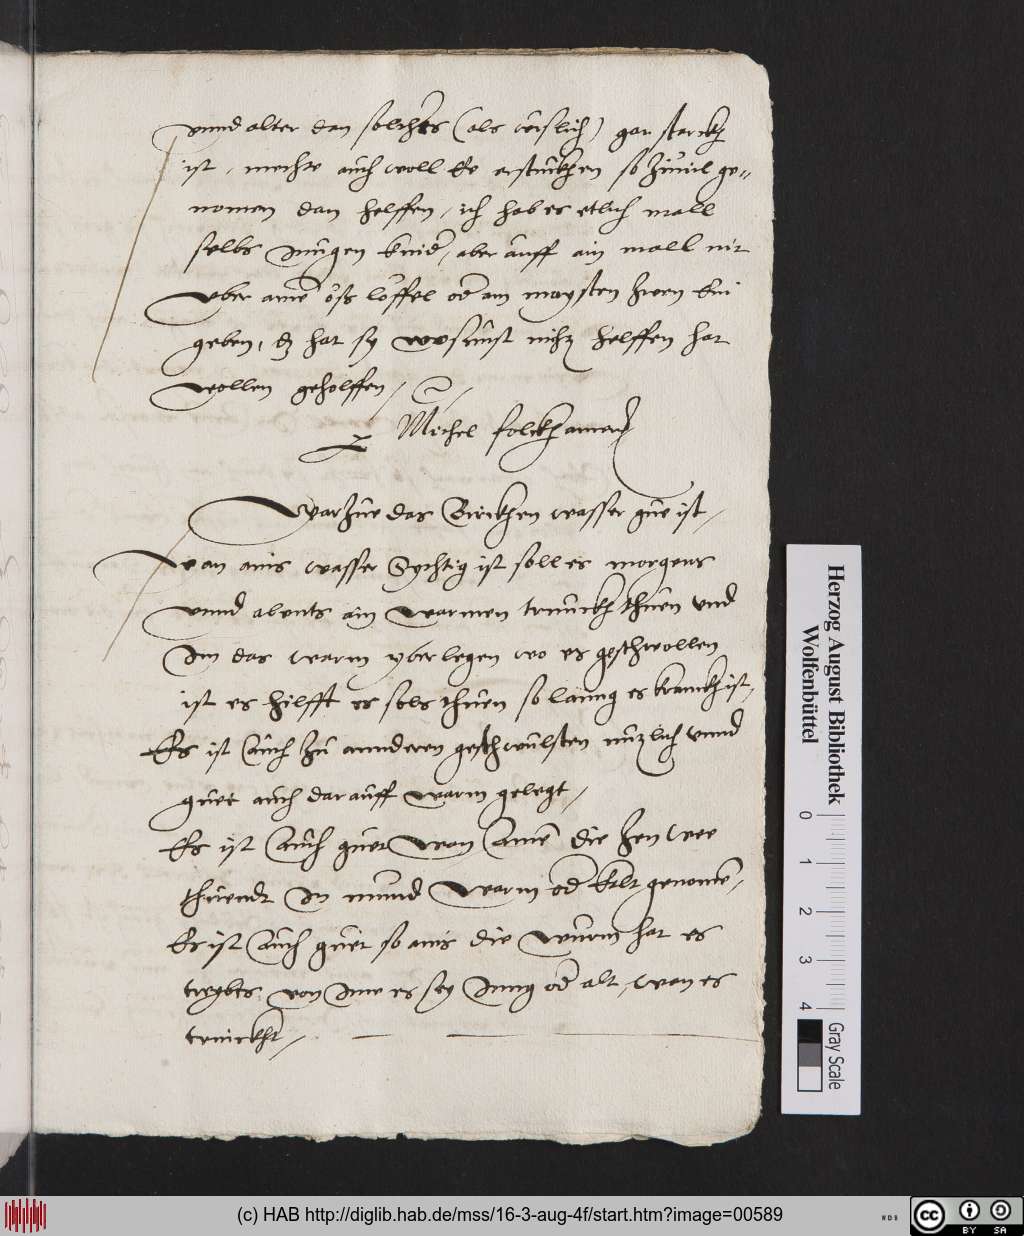 vnnd alter dan solichs (als ersslich) gar starckh
ist, mecht auch woll Ee ersticken so Zuuil ge=
nomen dan helffen, ich hab es etlich mall
selbs Jungen kind͠, aber auff ain mall nit
vber ainē löffel od͠ am maysten Zwen
geben, dz hat sy wo sunst nichz helffen hat
wollen geholffen,
Michel folckhamer
Warzue das Birckhen wasser guet ist,
Wan ains wasser Sychtig ist soll es morgens
vnnd abents ain warmen trunckh thuen vnd
Im das warm yber legen wo es geschwollen
ist es hilfft es sols thuen so lanng es kranckh ist,
Es ist Auch zu annderen geschwulsten nuzlich vnnd
guet auch darauff warm gelegt,
Es ist Auch guet wan Ainē die Zen wee
thuendt In mund warm od͠ kalt genomē,
Es ist Auch guet so ains die wurm hat es
treybts von Ime es sey Jung od͠ alt, wan es
trinckht,
Herzog August Bibliothek
Wolfenbüttel
0 1 2 3 4
Gray Scale
(c) HAB http://diglib.hab.de/mss/16-3-aug-4f/start.htm?image=00589
WDB
cc BY SA